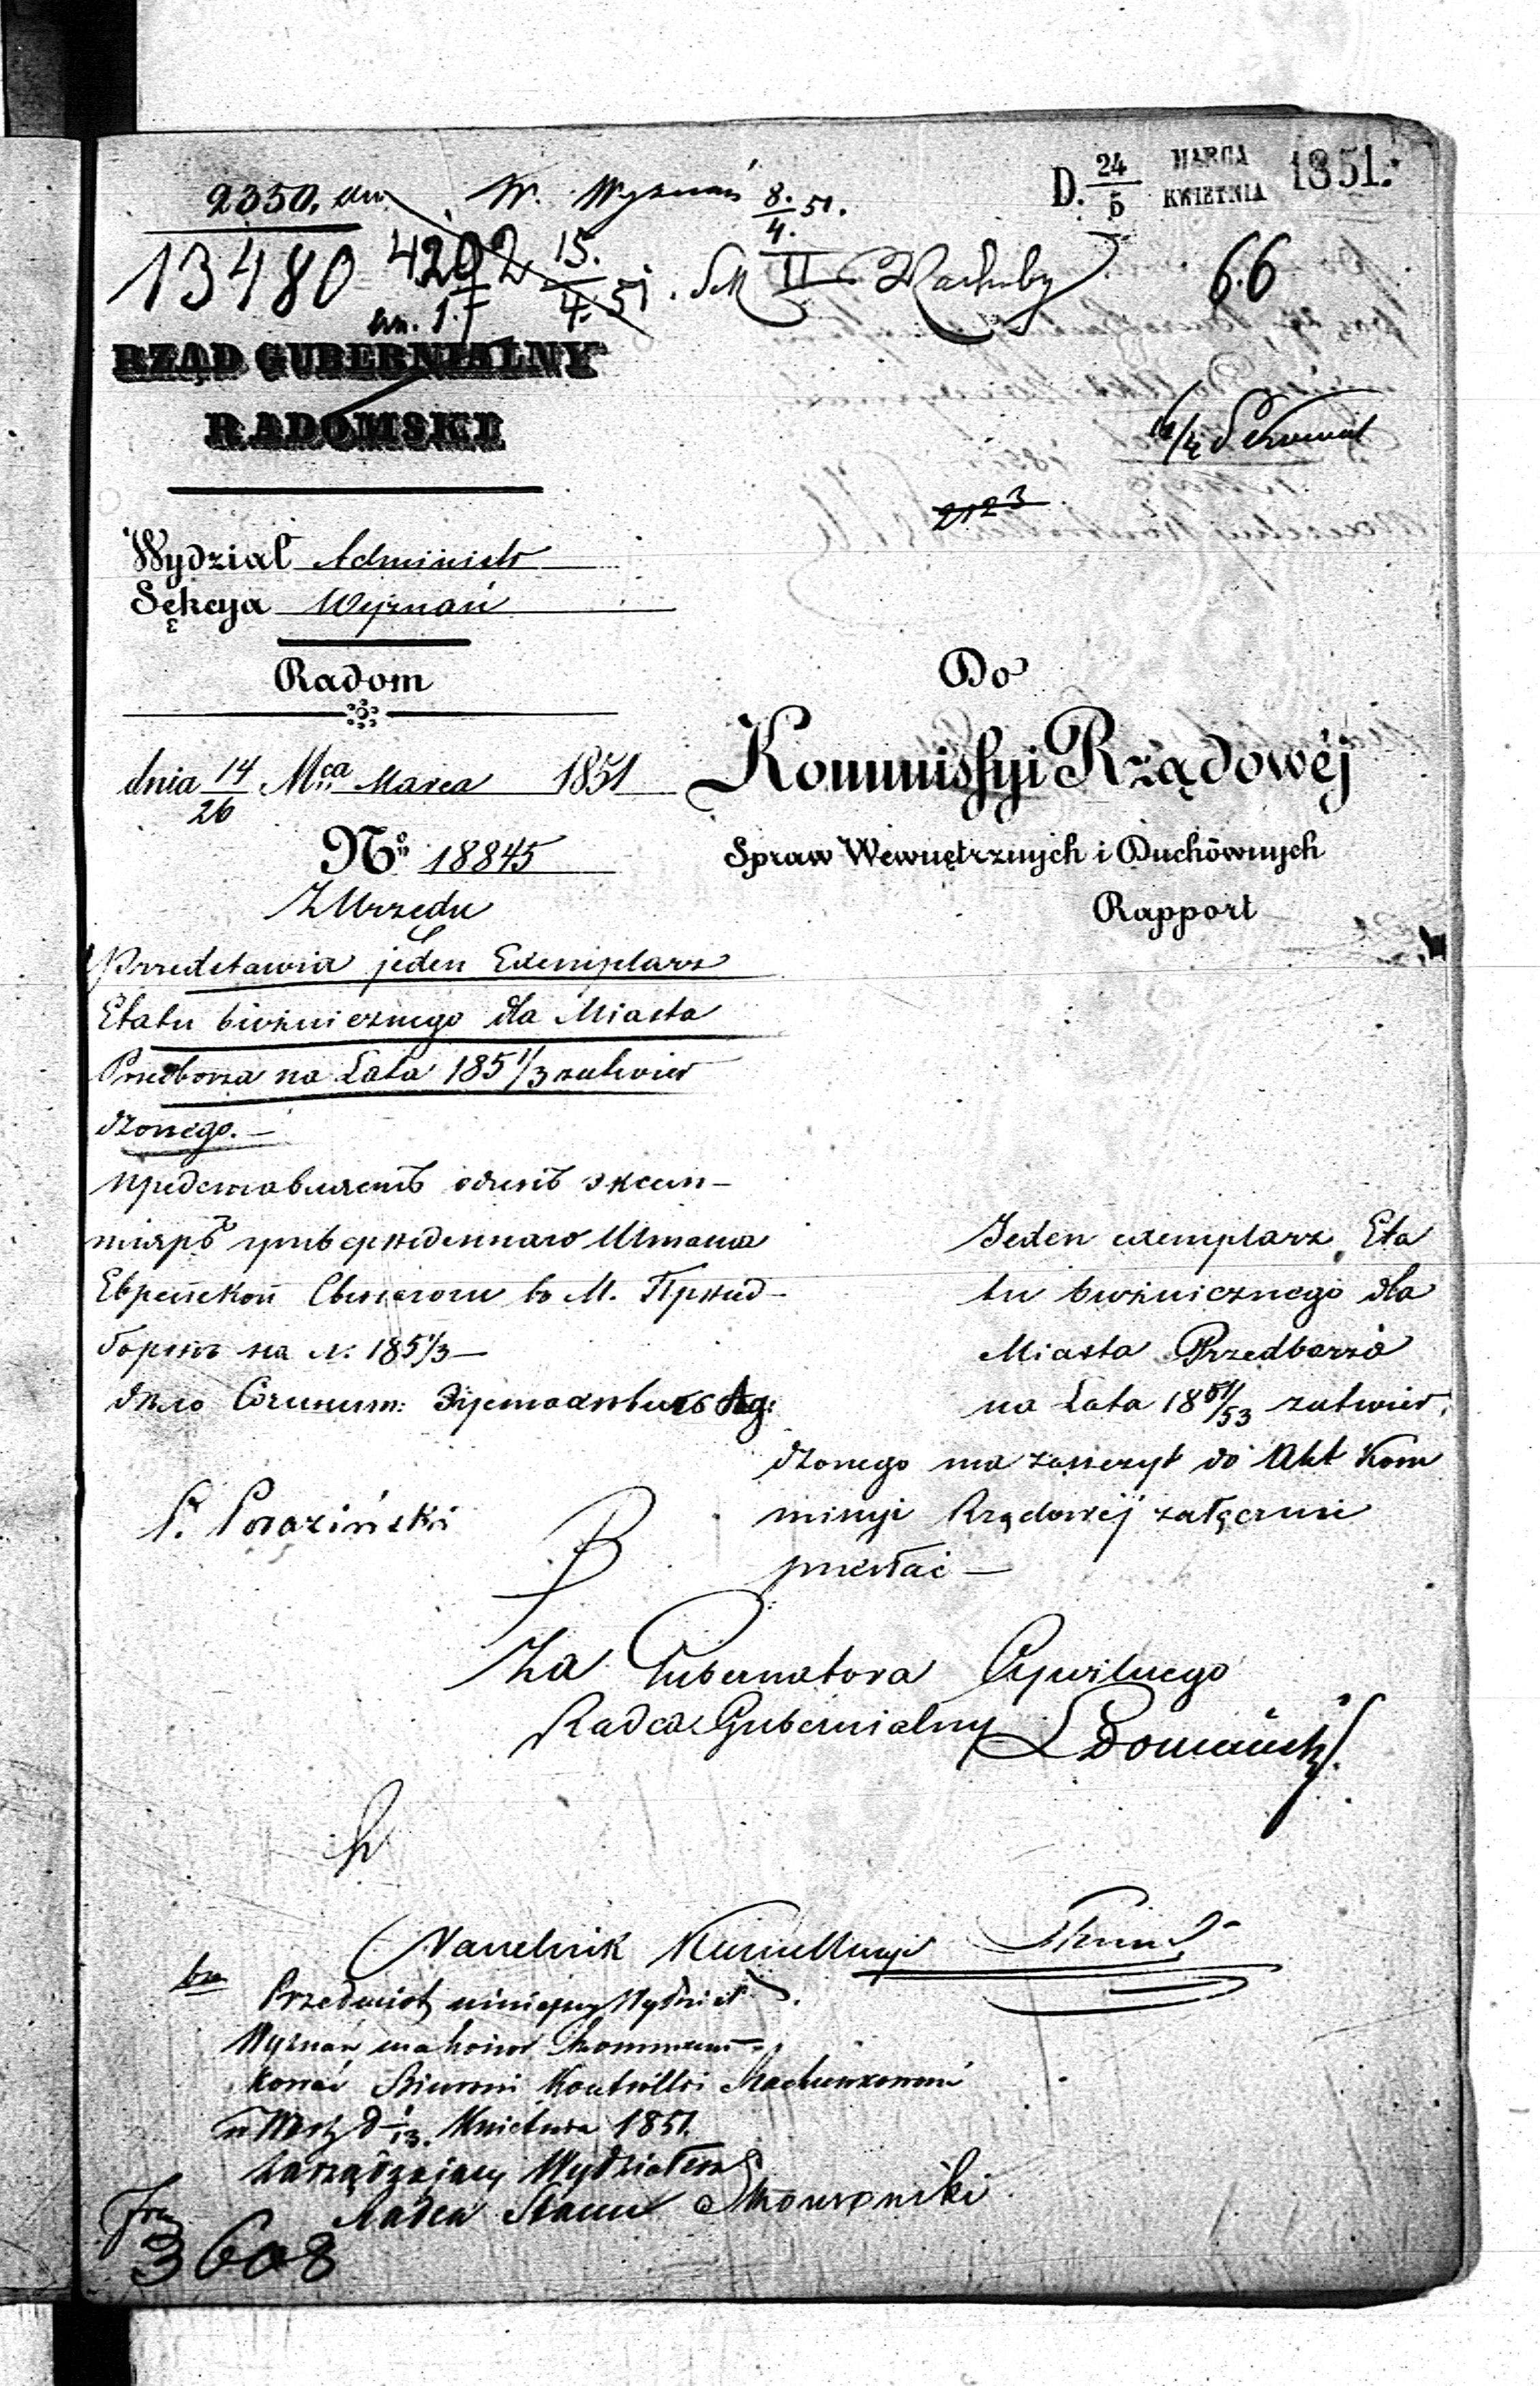 2350. W. Wyznań 8./4. 51.
D. 24/5 MARCA KWIETNIA 1851.
13480 4292 15./4. 51. II Rachuby
66
RZĄD GUBERNIALNY
RADOMSKI
2123
Wydział Administr
Sękcya Wyznań
Radom
dnia 14/26 Mca Marca 1851
No 18845
Z Urzędu
Do
Kommissyi Rządowéj
Spraw Wewnętrznych i Duchównych
Rapport
Przedstawia jeden Exemplarz
Etatu bużniczngo dla Miasta
Przedborza na Lata 185 1/3 zatwier
dzonego. —
Представляетъ одинъ экзем-
пляръ утвержденнаго Штата
Еврейской Синагоги во М. Пржед-
боржъ на л. 185 1/3 —
дѣло
P. Poraziński
Jeden exemplarz Eta
tu bużnicznego dla
Miasta Przedborza
na Lata 18 51/53 zatwier,
dzonego ma zaszczyt do Akt Kom
missyi Rządowéj załączeniu
przesłać —
Za Gubernatora Cywilnego
Radca Gubernialny
Naczelnik Kancellaryi
Przedmiot niniejszy Wydział
Wyznań ma honor
Biurowi Kontrolli Rachunkowéj
Kwietnia 1851.
Zarządzający Wydziałem
Radca Stanu Skowroński
3608